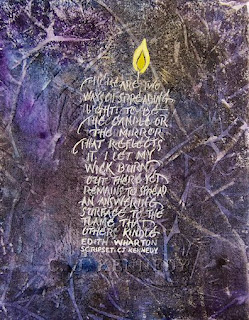 THERE ARE TWO
WAYS OF SPREADING
LIGHT: TO BE
THE CANDLE OR
THE MIRROR
THAT REFLECTS
IT. I LET MY
WICK BURN
OUT THERE YET
REMAINS TO SPREAD
AN ANSWERING
SURFACE TO THE
FLAME THAT
OTHERS KINDLE
EDITH WHARTON
SCRIPSIT: CJ KENNEDY